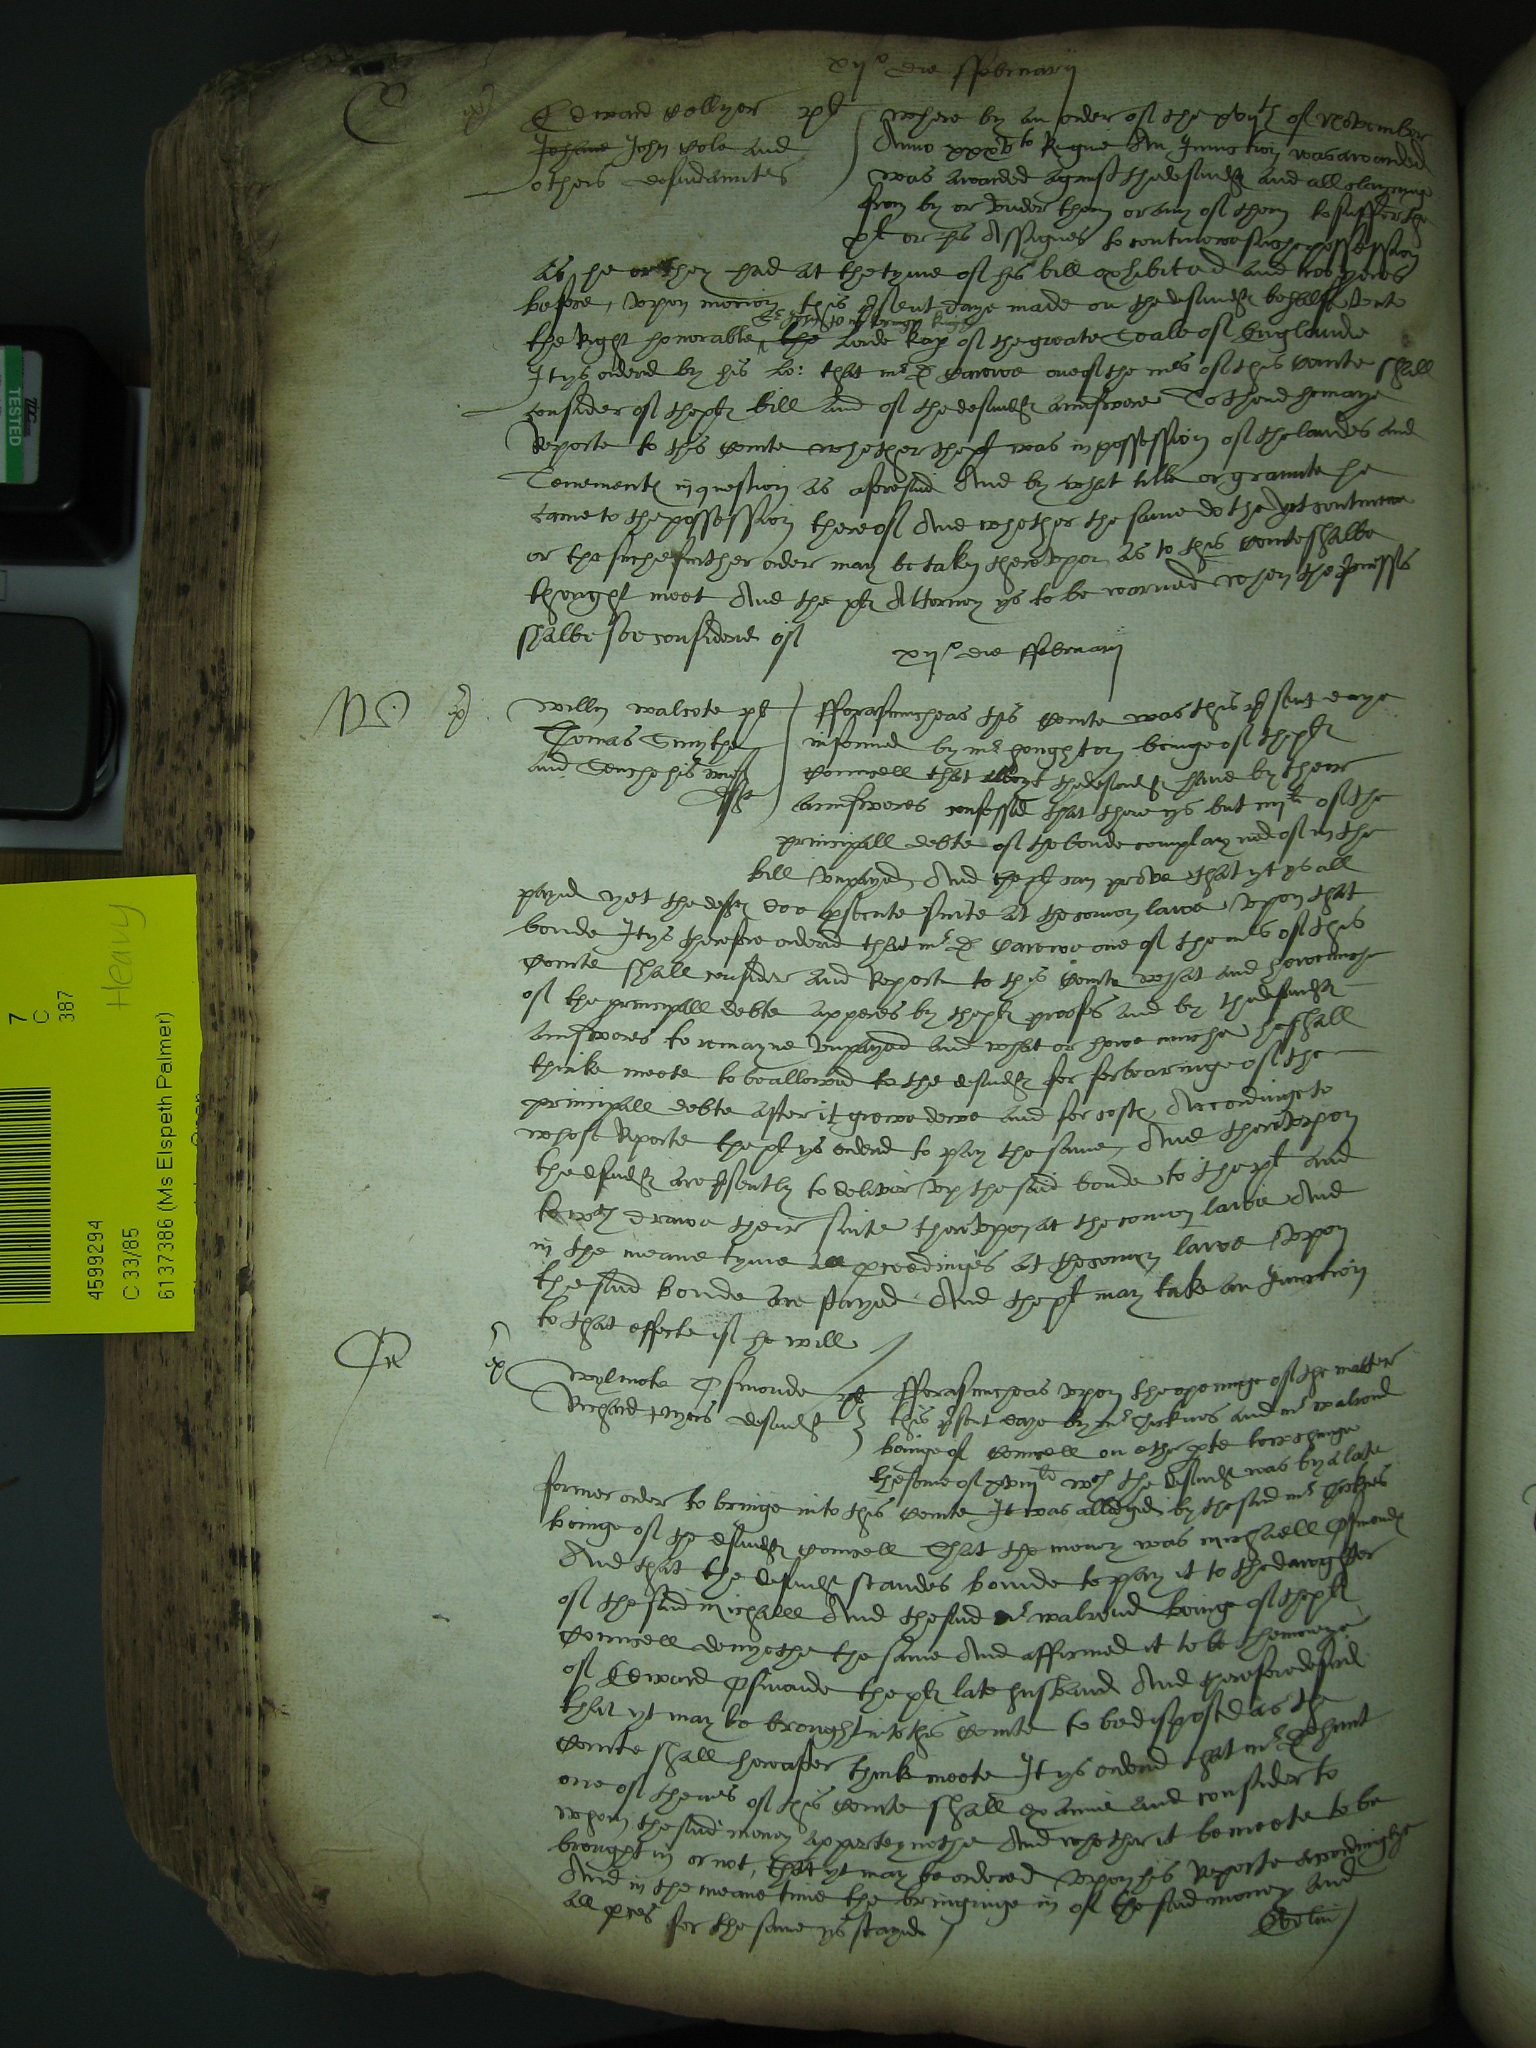 xij° die ffebruarij
C
Edward Collyer pl
Johane John Cole and
others defendauntes
where by an order of the xvijth of November
Anno xxxvto Regine An Iniunction was awarded
was awarded against the defendt and all clayminge
from by or vnder them or any of them to suffer the
pl or his Assignes to continewe suche possession
as he or they had at the tyme of his bill exhibited and two yeres
before, vpon motion this psent daye made on the defendt behalf vnto
the Right honorable the Lorde Kep of the greate Seale of Englande
It ys ordered by his Lo: that mr D Carewe one of the mrs of this Courte shall
consider of the plt bill and of the defendt aunswere To thend he maye
Reporte to this Courte whether the pl was in possession of the landes and
Tenementes in question as aforesaid And by what title or graunte he
came to the possession thereof And whether the same do the yet contineue
or the suche further order may be taken therevpon as to this Courte shalbe
thought meet And the plt Attorney ys to be warned when the
shalbe soe considered of
xij° die ffebruarij
Willm Walcote pl
Thomas Smythe
and his wief
deft
fforasmuche as this Courte was this psent daye
informed by mr Houghton beinge of the plt
Councell that the defendt have by their
aunsweres confessed that there ys but iiijli of the
principall debte of the bonde complayned of in the
bill vnpayed, And the pl can prove that yt ys all
payed yet the deft doe psecute suite at the comon lawe vpon that
bonde It ys therefore ordered that mr D Carewe one of the mrs of this
Courte shall consider and Reporte to this Courte what and howe muche
of the principall debte apperes by the plt proofes and by the defendt
aunsweres to remayne vnpayed and what or howe muche he shall
thinke meete to be allowed to the defendt for forbearinge of the
principall debte after it grewe dewe and for costes, Accordinge to
whose Reporte the pl ys ordered to pay the same, And therevpon
the defendt are psently to deliver vp the said bonde to the pl and
to wth drawe their suite therevpon at the comon lawe And
in the meane tyme all pceedinges at the comon lawe vpon
the said bonde are stayed And the pl may take an Iniunction
to that effecte if he will
Wylmote Osmonde pl
Richard defendt
fforasmuche as vpon the openinge of the matter
this psent daye by mr and mr Walrond
beinge of Councell on ether pte towchinge
the some of xviijli wch the defendt was by a late
former order to bringe into this Courte It was alledged by the said mr
beinge of the defendt Councell That the money was Michaell Osmondes
And that the defendt standes bounde to pay it to the daughter
of the said Michaell And the said mr Walrond beinge of the plt
Councell denyethe the same And affirmed it to be the moneye
of Edward Osmonde the plt late husband And therefore desired
that yt may be brought into this Courte to be disposed as the
Courte shall hereafter think meete It ys ordered that mr D Hunt
one of the mrs of this Courte shall examine and consider to
whom the said money apperteynethe And whether it be meete to be
brought in or not, that yt may be ordered vpon his Reporte accordinglye
And in the meane time the bringinge in of the said money And
all pces for the same ys stayed
TESTED
Heavy
7
C
387
4599294
C 33/85
6137386 (Ms Elspeth Palmer)